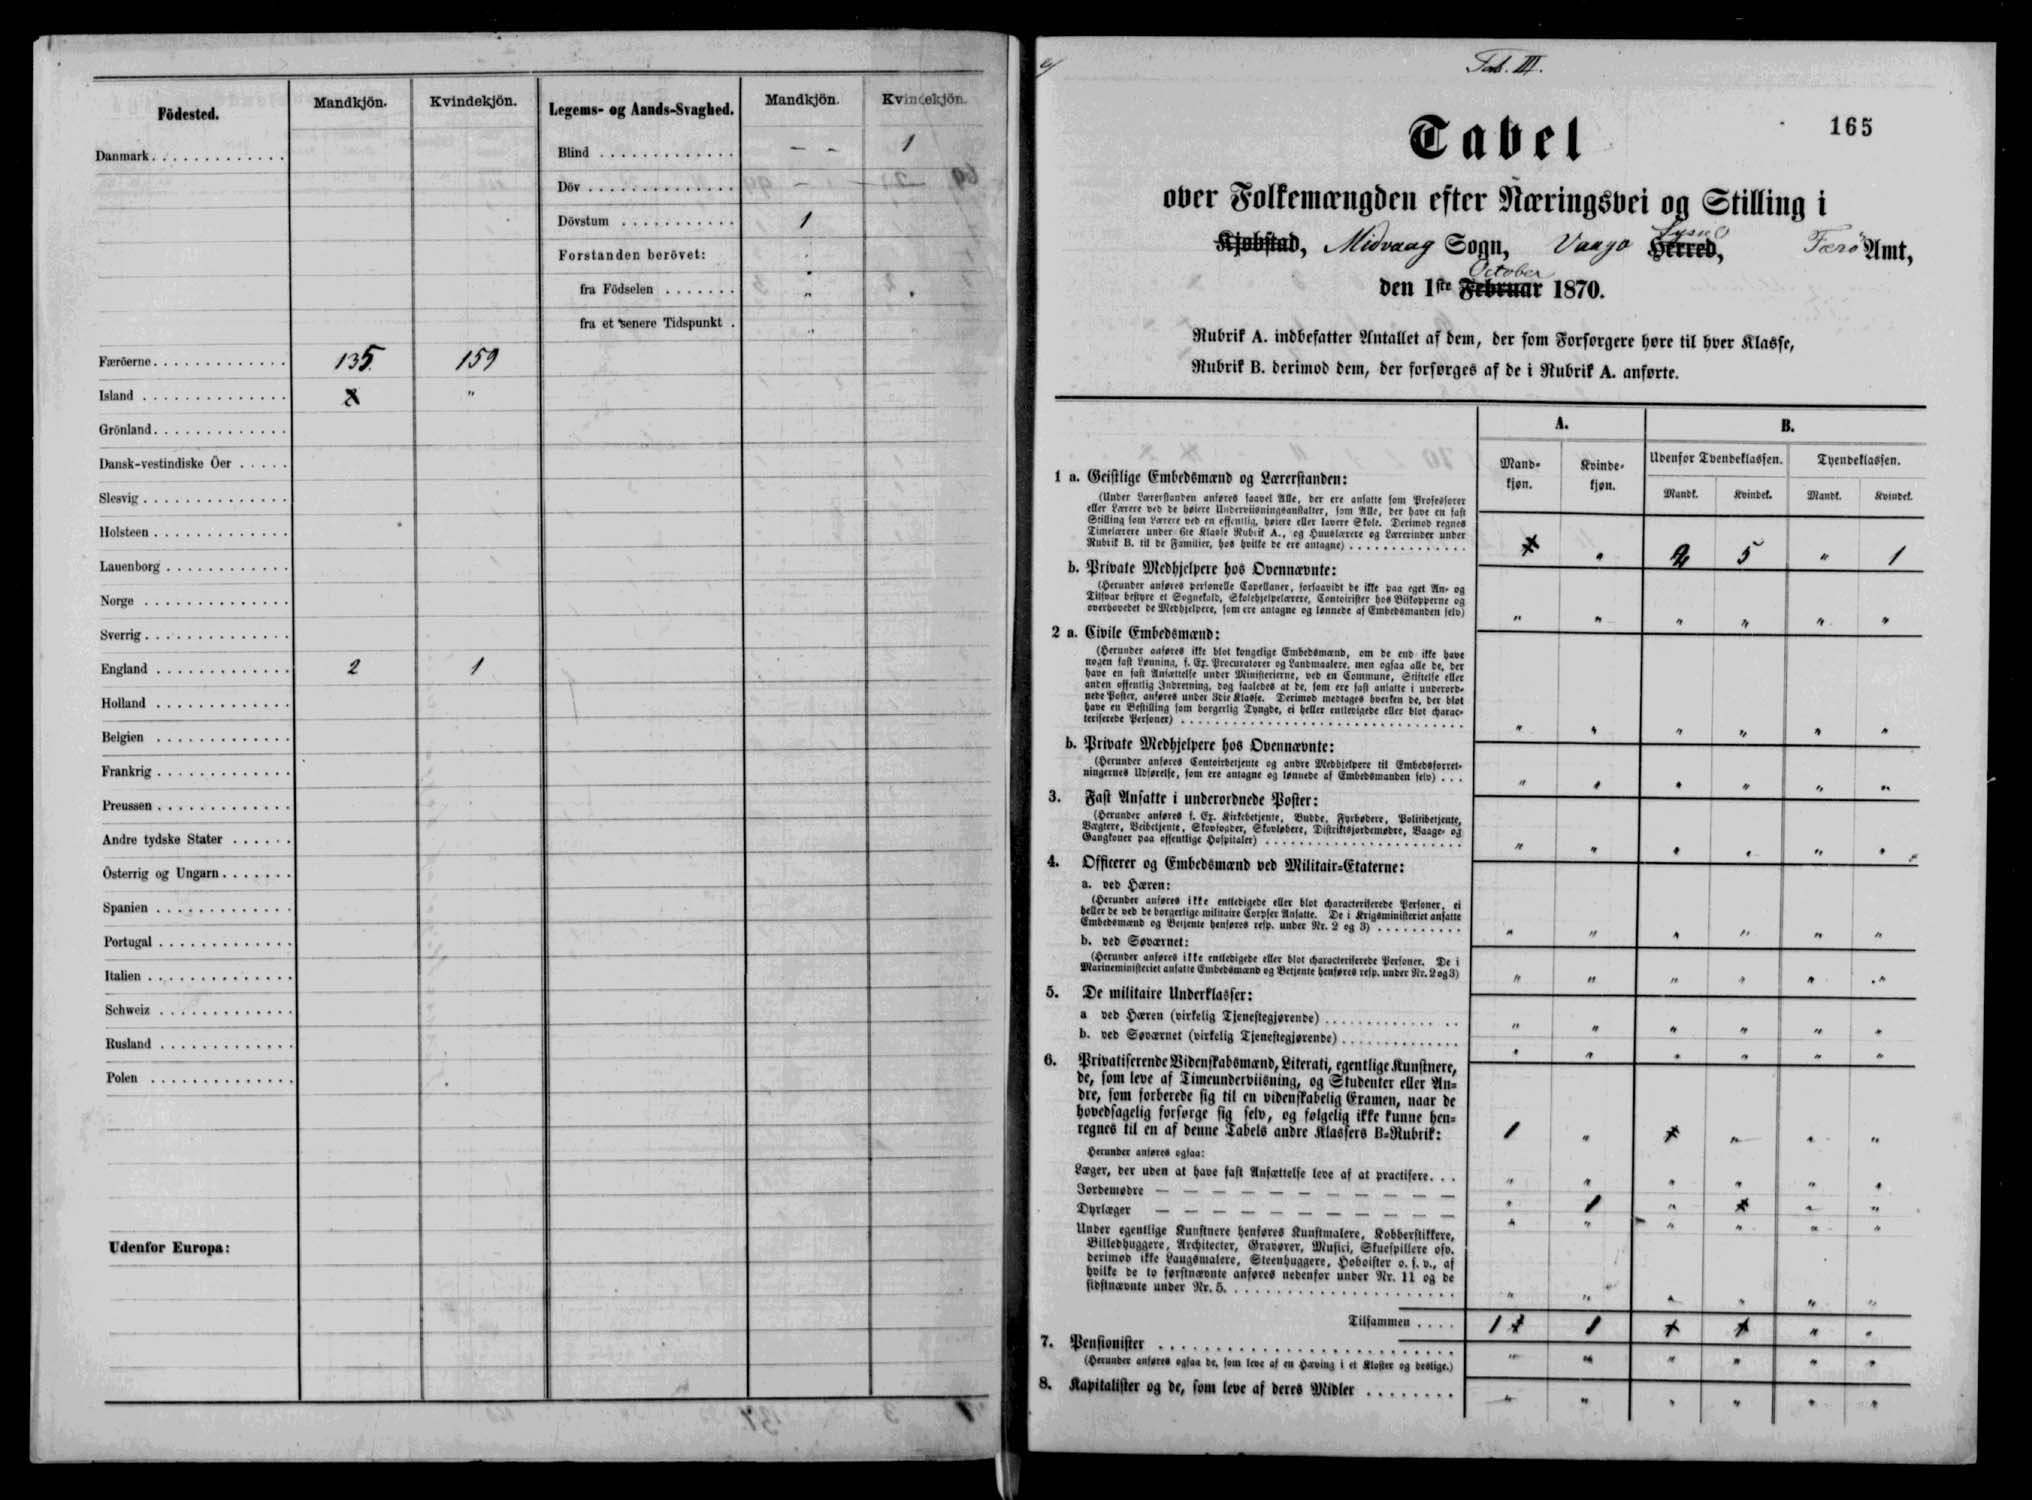 Födested.
Mandkjön.
Kvindekjön.
Legems- og Aands-Svaghed.
Mandkjön.
Kvindekjön.
Danmark
Blind – – 1
Döv – –
Dövstum 1
Forstanden berövet: "
fra Födselen " "
fra et senere Tidspunkt "
Færöerne 135 159
Island "
Grönland
Dansk-vestindiske Öer
Slesvig
Holsteen
Lauenborg
Norge
Sverrig
England 2 1
Holland
Belgien
Frankrig
Preussen
Andre tydske Stater
Österrig og Ungarn
Spanien
Portugal
Italien
Schweiz
Rusland
Polen
Udenfor Europa:
Tab. III.
165
Tabel
over Folkemængden efter Næringsvei og Stilling i
Kjøbstad, Midvaag Sogn, Vaagø Herred, Syssel Færø Amt,
den 1ste Februar October 1870.
Rubrik A. indbefatter Antallet af dem, der som Forsørgere høre til hver Klasse,
Rubrik B. derimod dem, der forsørges af de i Rubrik A. anførte.
A.
B.
Mand-
kjøn.
Kvinde-
kjøn.
Udenfor Tyendeklassen.
Tyendeklassen.
Mandk.
Kvindek.
Mandk.
Kvindek.
1 a. Geistlige Embedsmænd og Lærerstanden:
(Under Lærerstanden anføres saavel Alle, der ere ansatte som Professorer
eller Lærere ved de høiere Underviisningsanstalter, som Alle, der have en fast
Stilling som Lærere ved en offentlig, høiere eller lavere Skole. Derimod regnes
Timelærere under 6te Klasse Rubrik A., og Huuslærere og Lærerinder under
Rubrik B. til de Familier, hos hvilke de ere antagne) " 5 " 1
b. Private Medhjelpere hos Ovennævnte:
(Herunder anføres personelle Capellaner, forsaavidt de ikke paa eget An- og
Tilsvar bestyre et Sognekald, Skolehjelpelærere, Contoirister hos Biskopperne og
overhovedet de Medhjelpere, som ere antagne og lønnede af Embedsmanden selv) " " " " " "
2 a. Civile Embedsmænd:
(Herunder anføres ikke blot kongelige Embedsmænd, om de end ikke have
nogen fast Lønning, f. Ex. Procuratorer og Landmaalere, men ogsaa alle de, der
have en fast Ansættelse under Ministerierne, ved en Commune, Stiftelse eller
anden offentlig Indretning, dog saaledes at de, som ere fast ansatte i underord-
nede Poster, anføres under 3die Klasse. Derimod medtages hverken de, der blot
have en Bestilling som borgerlig Tyngde, ei heller entledigede eller blot charac-
teriserede Personer) " " " " " "
b. Private Medhjelpere hos Ovennævnte:
(Herunder anføres Contoirbetjente og andre Medhjelpere til Embedsforret-
ningernes Udførelse, som ere antagne og lønnede af Embedsmanden selv) " " " " " "
3. Fast Ansatte i underordnede Poster:
(Herunder anføres f. Ex. Kirkebetjente, Budde, Fyrbødere, Politibetjente,
Vægtere, Veibetjente, Skovfogder, Skovløbere, Distriktsjordemødre, Vaage- og
Gangkoner paa offentlige Hospitaler) " " " " " "
4. Officerer og Embedsmænd ved Militair-Etaterne:
a. ved Hæren:
(Herunder anføres ikke entledigede eller blot characteriserede Personer, ei
heller de ved de borgerlige militaire Corpser Ansatte. De i Krigsministeriet ansatte
Embedsmænd og Betjente henføres resp. under Nr. 2 og 3) " " " " " "
b. ved Søværnet:
(Herunder anføres ikke entledigede eller blot characteriserede Personer. De i
Marineministeriet ansatte Embedsmænd og Betjente henføres resp. under Nr. 2 og 3) " " " " " "
5. De militaire Underklasser:
a ved Hæren (virkelig Tjenestegjørende) " " " " " "
b. ved Søværnet (virkelig Tjenestegjørende) " " " " " "
6. Privatiserende Videnskabsmænd, Literati, egentlige Kunstnere,
de, som leve af Timeunderviisning, og Studenter eller An-
dre, som forberede sig til en videnskabelig Examen, naar de
hovedsagelig forsørge sig selv, og følgelig ikke kunne hen-
regnes til en af denne Tabels andre Klassers B-Rubrik: 1 " " " "
Herunder anføres ogsaa:
Læger, der uden at have fast Ansættelse leve af at practisere. " " " " " "
Jordemødre — — — — — — — — — — — " 1 " " "
Dyrlæger — — — — — — — — — — — " " " " " "
Under egentlige Kunstnere henføres Kunstmalere, Kobberstikkere,
Billedhuggere, Architecter, Gravører, Musici, Skuespillere osv.
derimod ikke Laugsmalere, Steenhuggere, Hoboister o. s. v., af
hvilke de to førstnævnte anføres nedenfor under Nr. 11 og de
sidstnævnte under Nr. 5. " " " " " "
Tilsammen 1 1 " "
7. Pensionister " " " " " "
(Herunder anføres ogsaa de, som leve af en Hæving i et Kloster og deslige.)
8. Kapitalister og de, som leve af deres Midler " " " " " "